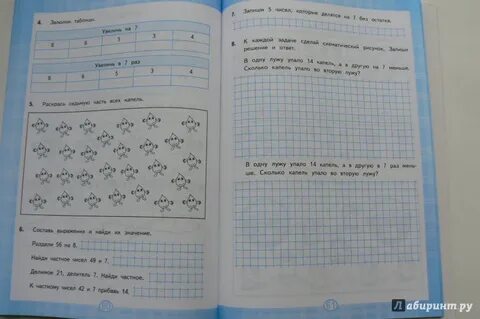 4. Заполни таблицы.
Увеличь на 7
8 6 5 3 4
Увеличь в 7 раз
8 6 5 3 4
5. Раскрась седьмую часть всех капель.
6. Составь выражения и найди их значение.
Раздели 56 на 8.
Найди частное чисел 49 и 7.
Делимое 21, делитель 7. Найди частное.
К частному чисел 42 и 7 прибавь 14.
7. Запиши 5 чисел, которые делятся на 7 без остатка.
8. К каждой задаче сделай схематический рисунок. Запиши
решение и ответ.
В одну лужу упало 14 капель, а в другую на 7 меньше.
Сколько капель упало во вторую лужу?
В одну лужу упало 14 капель, а в другую в 7 раз мень-
ше. Сколько капель упало во вторую лужу?
Лабиринт.ру